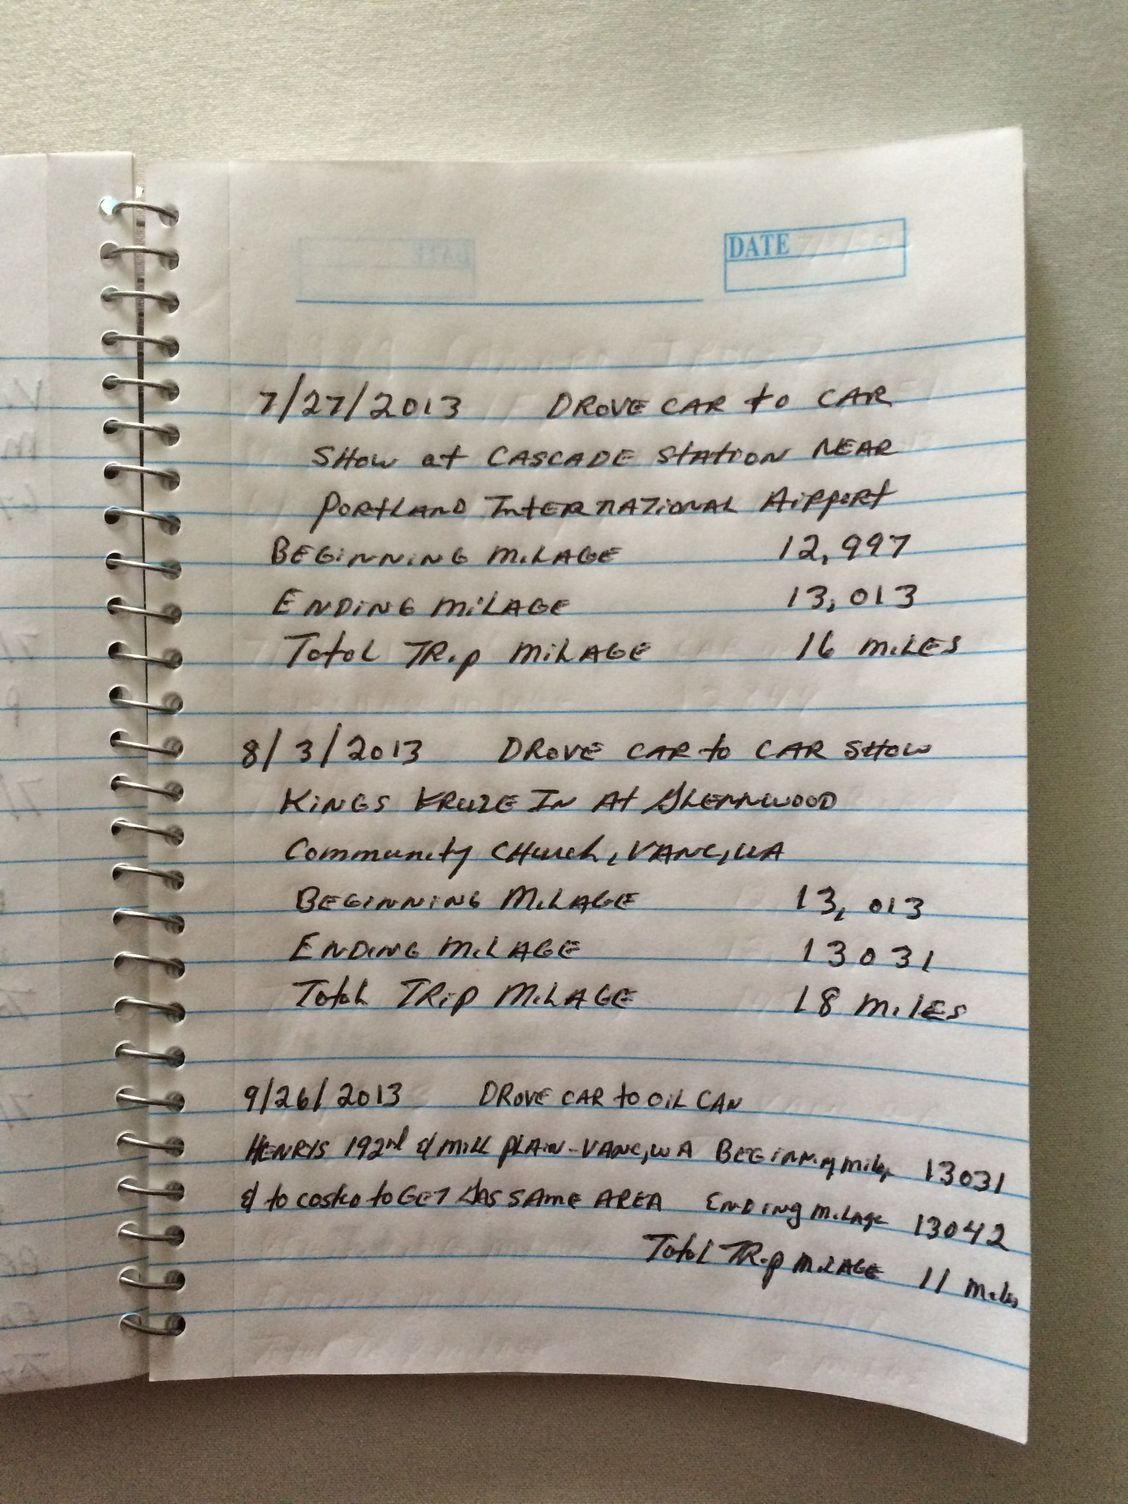 DATE
7/27/2013 DROVE CAR to CAR
SHOW at CASCADE STATION NEAR
PORTLAND INTERNATIONAL AIRPORT
BEGINNING MILAGE 12,997
ENDING MILAGE 13,013
Total TRIP MILAGE 16 MILES
8/3/2013 DROVE CAR to CAR SHOW
KINGS KRUZE IN At GLENNWOOD
Community CHurch, VANC, WA
BEGINNING MILAGE 13,013
ENDING MILAGE 13031
Total TRIP MILAGE 18 MILES
9/26/2013 DROVE CAR to OIL CAN
HENRYS 192nd & MILL PLAIN-VANC, WA BEGINNING 13031
& to costco to GET GAS SAME AREA ENDING MILAGE 13042
Total TRIP MILAGE 11 Miles